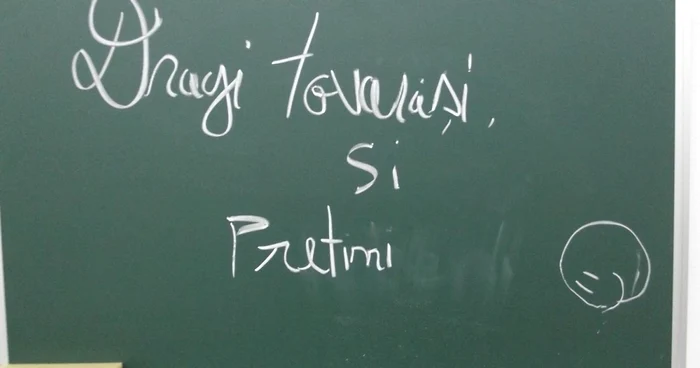 Dragi tovarăși,
si
Pretini